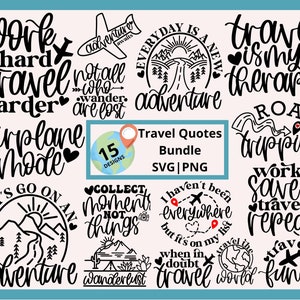 work
hard
travel
harder
adventure
awaits
EVERYDAY IS A NEW
adventure
travel
is my
therapy
not all
who
wander
are lost
airplane
mode
15
DESIGNS
Travel Quotes
Bundle
SVG|PNG
ROAD
trippin
LET'S GO ON AN
adventure
COLLECT
moments
NOT
things
wanderlust
I haven't been
everywhere
but it's on my list
when in
doubt
travel
work
save
travel
repeat
the
world
travel
fund